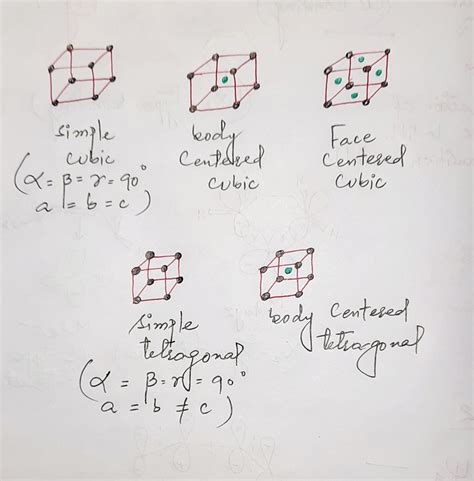 simple
cubic
(α = β = r = 90°
a = b = c)
body
Centered
cubic
Face
Centered
cubic
simple
tetragonal
(α = β = r = 90°
a = b ≠ c)
body Centered
tetragonal